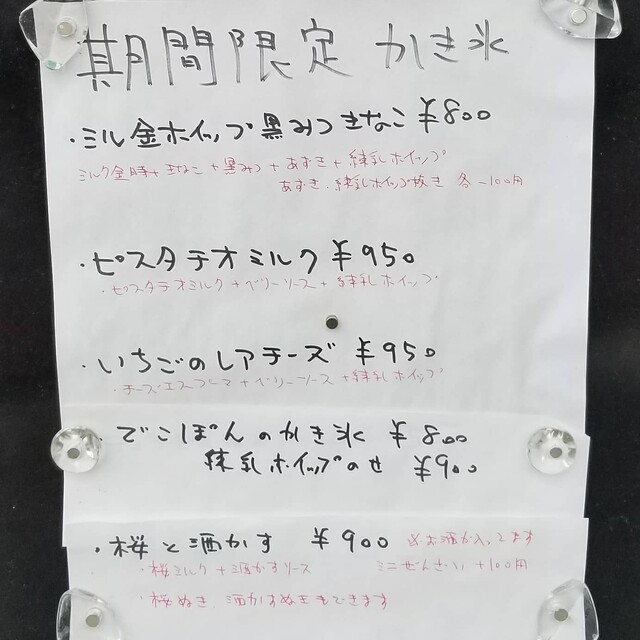 期間限定 かき氷
・ミル金ホイップ黒みつきなこ ¥800
ミルク金時+きなこ+黒みつ+あずき+練乳ホイップ
あずき・練乳ホイップ抜き 各-100円
・ピスタチオミルク ¥950
・ピスタチオミルク+ベリーソース+練乳ホイップ
・いちごのレアチーズ ¥950
・チーズエスプーマ+ベリーソース+練乳ホイップ
・でこぽんのかき氷 ¥800
練乳ホイップのせ ¥900
・桜と酒かす ¥900 ※お酒が入ってます
・桜ミルク+酒かすソース ミニぜんざい+100円
・桜ぬき 酒かすぬきもできます